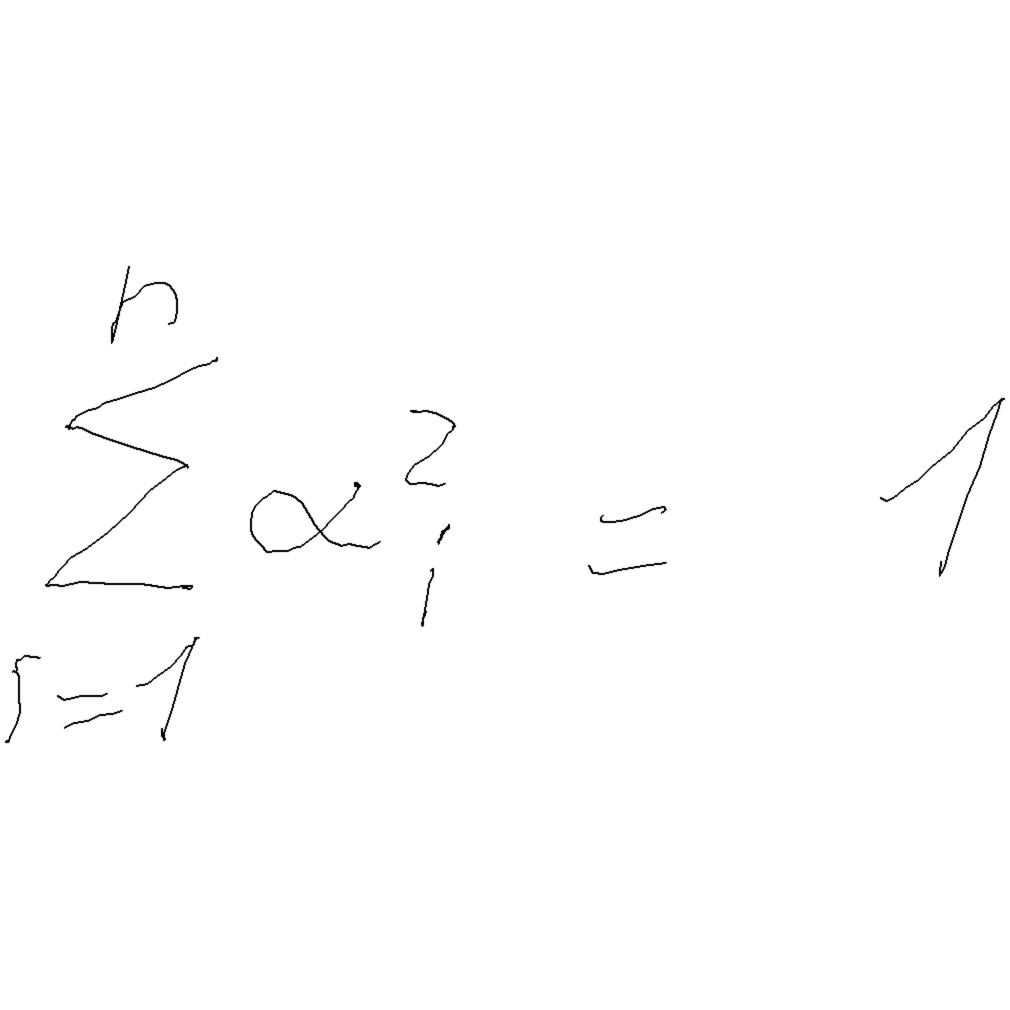 \sum_{i=1}^{n} \alpha_i^2 = 1